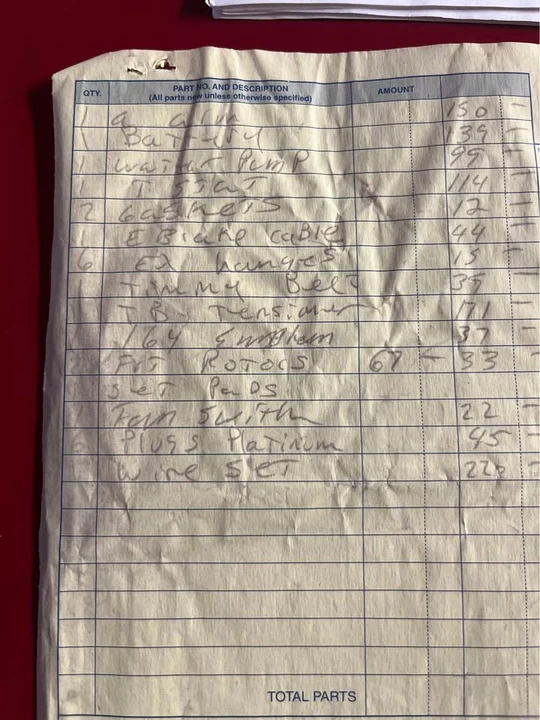 QTY. PART NO. AND DESCRIPTION AMOUNT
(All parts new unless otherwise specified)
1 150 -
1 Battery 139 -
1 Water Pump 99 -
1 T STAT 114 -
2 Gaskets 12 -
1 E Brake cable 44 -
6 EX hanges 15 -
1 Timmy Belt 39 -
TB Tensioner 171 -
164 Emblem 37 -
FRT ROTORS 67 - 33 -
SET PADS
1 Fan Swith 22 -
6 Plugs Platinum 45 -
1 Wire SET 22
TOTAL PARTS